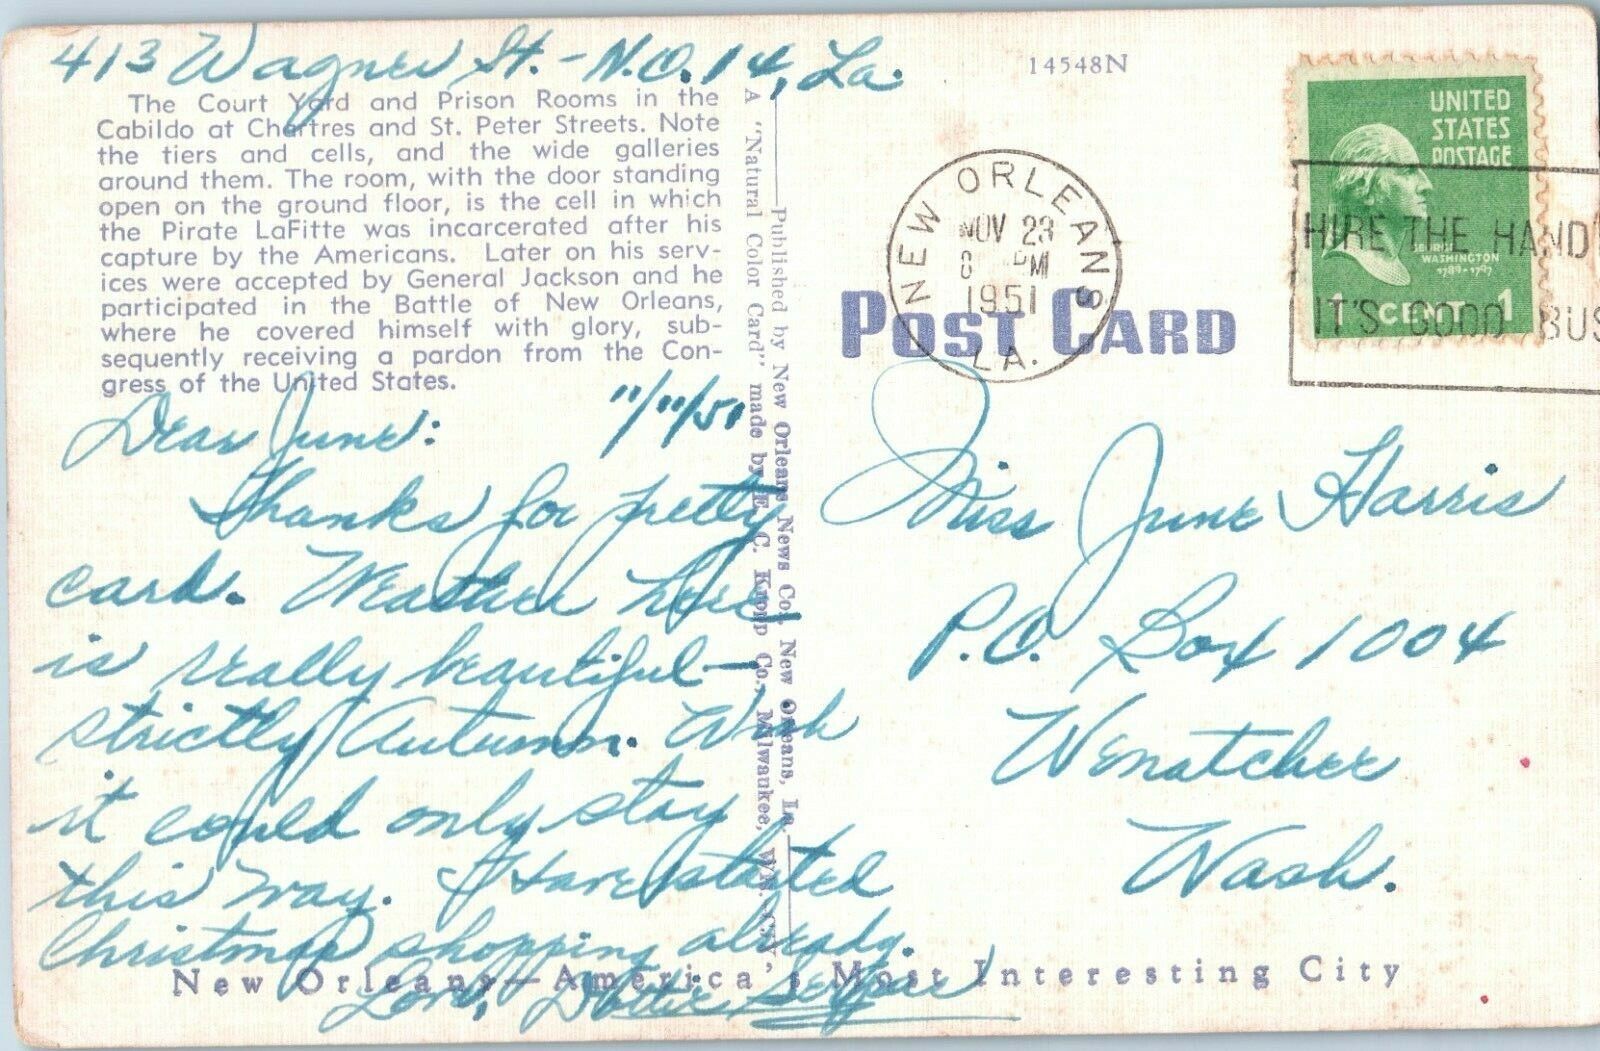 413 Wagner St. - N.O. 14, La.
14548N
The Court Yard and Prison Rooms in the
Cabildo at Chartres and St. Peter Streets. Note
the tiers and cells, and the wide galleries
around them. The room, with the door standing
open on the ground floor, is the cell in which
the Pirate LaFitte was incarcerated after his
capture by the Americans. Later on his serv-
ices were accepted by General Jackson and he
participated in the Battle of New Orleans,
where he covered himself with glory, sub-
sequently receiving a pardon from the Con-
gress of the United States.
11/11/51
Dear June:
Thanks for pretty
card. Weather here
is really beautiful—
strictly Autumn. Wish
it could only stay
this way. I Have started
Christmas shopping already.
Love, Dottie
A "Natural Color Card" made by E. C. Kropp Co., Milwaukee, Wis.
Published by New Orleans News Co., New Orleans, La.
POST CARD
NEW ORLEANS
NOV 23
PM
1951
LA.
UNITED
STATES
POSTAGE
GEORGE
WASHINGTON
1789-1797
1 CENT 1
HIRE THE HAND
IT'S GOOD BUS
Miss June Harris
P.O. Box 1004
Wenatchee
Wash.
New Orleans—America's Most Interesting City